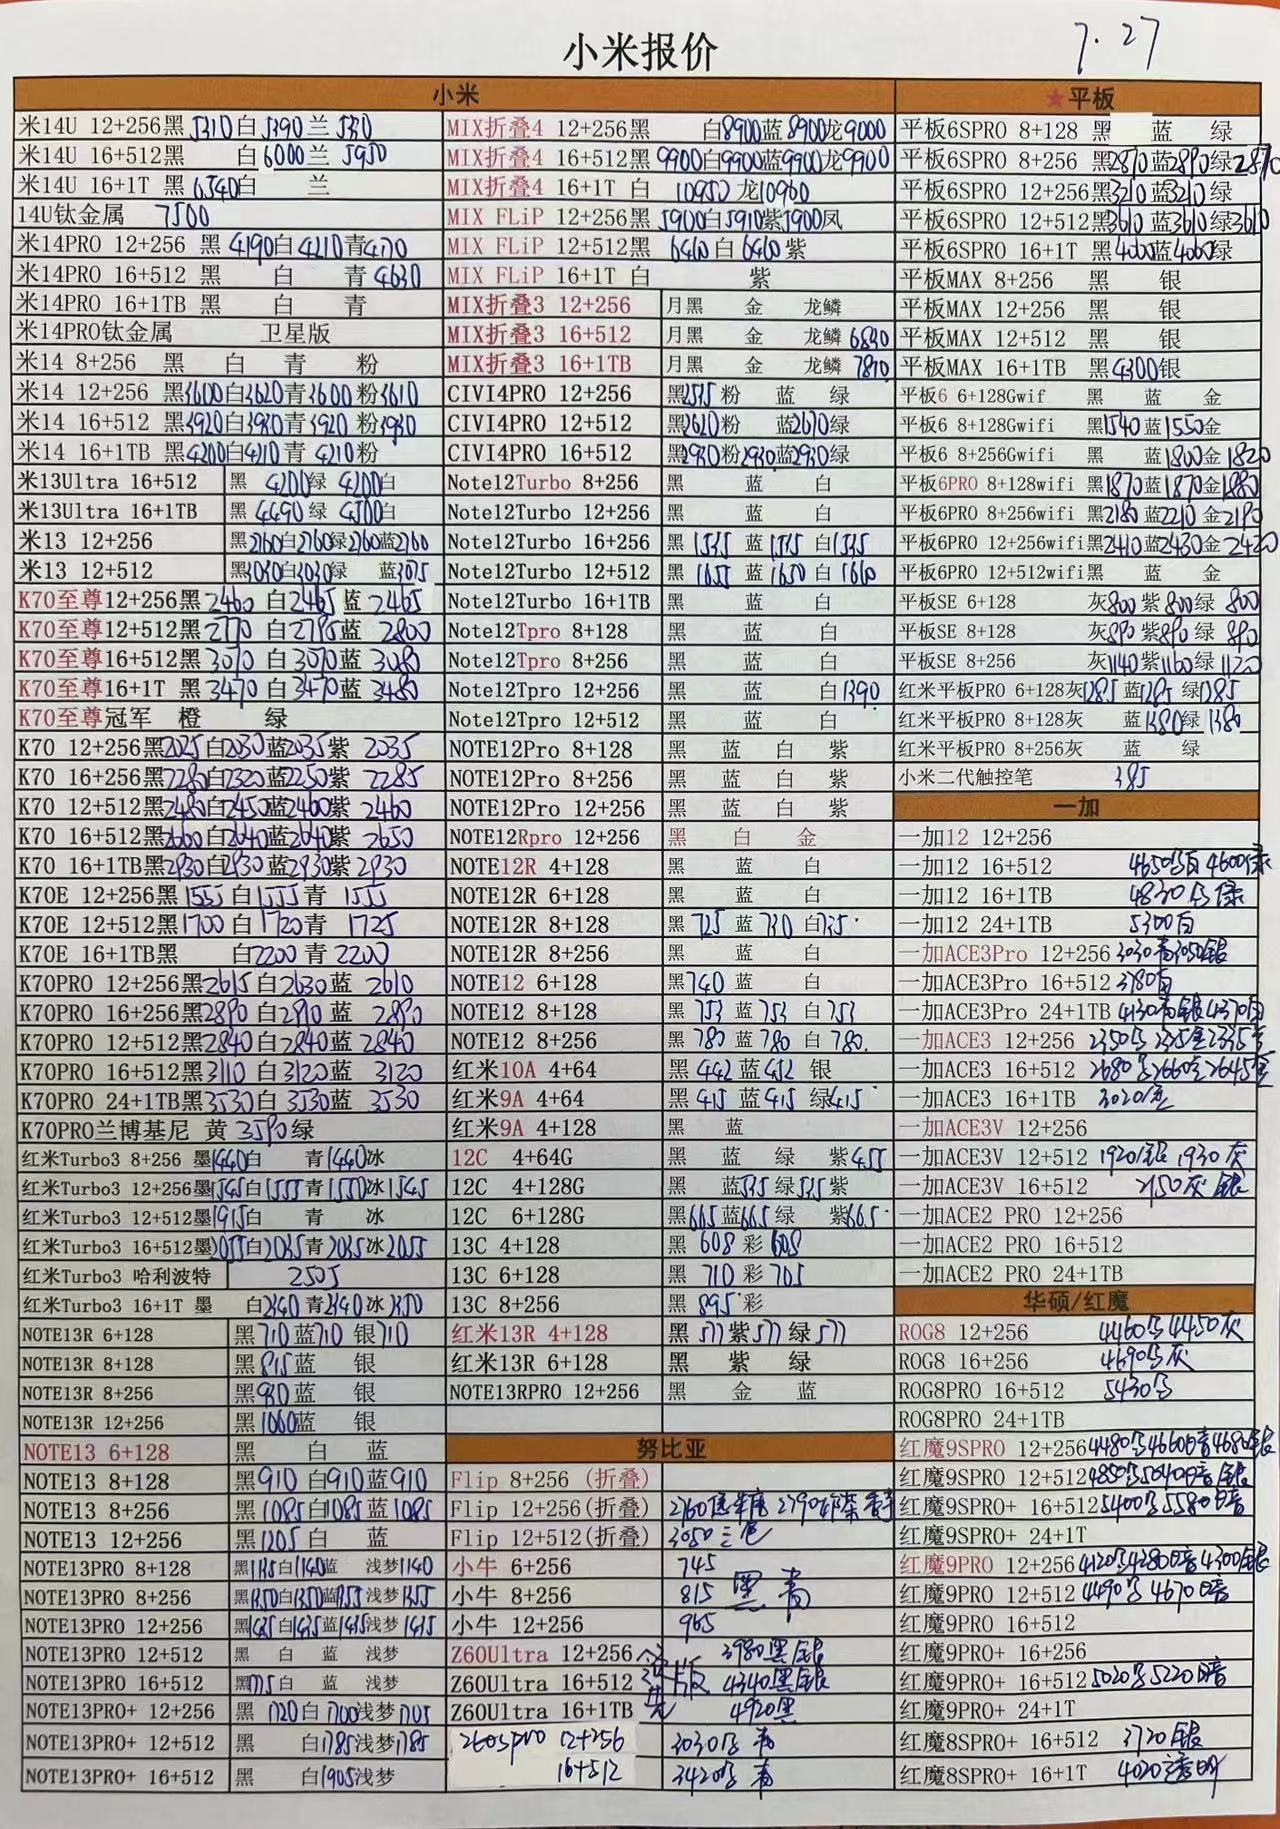 小米报价
7.27
小米
米14U 12+256黑 5310白5390兰5370
米14U 16+512黑 白6000兰5950
米14U 16+1T 黑 6540白 兰
14U钛金属 7500
米14PRO 12+256 黑 4190白4210青4170
米14PRO 16+512 黑 白 青4630
米14PRO 16+1TB 黑 白 青
米14PRO钛金属 卫星版
米14 8+256 黑 白 青 粉
米14 12+256 黑3600白3620青3600粉3610
米14 16+512 黑3920白3930青3920粉3930
米14 16+1TB 黑4200白4210青4210粉
米13Ultra 16+512 黑 4200绿4200白
米13Ultra 16+1TB 黑 4490绿4500白
米13 12+256 黑2760白2760绿2760蓝2760
米13 12+512 黑3030白3030绿 蓝3075
K70至尊12+256黑2460 白2465蓝2465
K70至尊12+512黑2770 白2795蓝2800
K70至尊16+512黑3070 白3070蓝3080
K70至尊16+1T 黑3470 白3470蓝3480
K70至尊冠军 橙 绿
K70 12+256黑2025白2030蓝2035紫2035
K70 16+256黑2280白2320蓝2250紫2285
K70 12+512黑2480白2450蓝2460紫2460
K70 16+512黑2660白2640蓝2640紫2650
K70 16+1TB黑2930白2930蓝2930紫2930
K70E 12+256黑1555白1555青1555
K70E 12+512黑1700白1720青1725
K70E 16+1TB黑 白2200青2200
K70PRO 12+256黑2615白2630蓝2610
K70PRO 16+256黑2890白2910蓝2890
K70PRO 12+512黑2840白2840蓝2840
K70PRO 16+512黑3110白3120蓝3120
K70PRO 24+1TB黑3530白3530蓝3530
K70PRO兰博基尼 黄3590绿
红米Turbo3 8+256 墨1440白 青1440冰
红米Turbo3 12+256墨1545白1555青1550冰1545
红米Turbo3 12+512墨1915白 青 冰
红米Turbo3 16+512墨2055白2035青2035冰2055
红米Turbo3 哈利波特 2505
红米Turbo3 16+1T 墨 白2340青2340冰2350
NOTE13R 6+128 黑710蓝710银710
NOTE13R 8+128 黑815蓝 银
NOTE13R 8+256 黑930蓝 银
NOTE13R 12+256 黑1060蓝 银
NOTE13 6+128 黑 白 蓝
NOTE13 8+128 黑910白910蓝910
NOTE13 8+256 黑1085白1085蓝1085
NOTE13 12+256 黑1205白 蓝
NOTE13PRO 8+128 黑1145白1140蓝 浅梦1140
NOTE13PRO 8+256 黑1350白1350蓝1355浅梦1355
NOTE13PRO 12+256 黑1435白1435蓝1435浅梦1435
NOTE13PRO 12+512 黑 白 蓝 浅梦
NOTE13PRO 16+512 黑1775白 蓝 浅梦
NOTE13PRO+ 12+256 黑 1720白1700浅梦1705
NOTE13PRO+ 12+512 黑 白1785浅梦1785
NOTE13PRO+ 16+512 黑 白1905浅梦
MIX折叠4 12+256黑 白8900蓝8900龙9000
MIX折叠4 16+512黑9900白9900蓝9900龙9900
MIX折叠4 16+1T 白 10950 龙10960
MIX FLiP 12+256黑5900白5910紫5900凤
MIX FLiP 12+512黑 6460白6460紫
MIX FLiP 16+1T 白 紫
MIX折叠3 12+256 月黑 金 龙鳞
MIX折叠3 16+512 月黑 金 龙鳞6840
MIX折叠3 16+1TB 月黑 金 龙鳞7890
CIVI4PRO 12+256 黑2535粉 蓝 绿
CIVI4PRO 12+512 黑2620粉 蓝2670绿
CIVI4PRO 16+512 黑2930粉2930蓝2930绿
Note12Turbo 8+256 黑 蓝 白
Note12Turbo 12+256 黑 蓝 白
Note12Turbo 16+256 黑1535蓝1535白1535
Note12Turbo 12+512 黑1655蓝1650白1660
Note12Turbo 16+1TB 黑 蓝 白
Note12Tpro 8+128 黑 蓝 白
Note12Tpro 8+256 黑 蓝 白
Note12Tpro 12+256 黑 蓝 白1390
Note12Tpro 12+512 黑 蓝 白
NOTE12Pro 8+128 黑 蓝 白 紫
NOTE12Pro 8+256 黑 蓝 白 紫
NOTE12Pro 12+256 黑 蓝 白 紫
NOTE12Rpro 12+256 黑 白 金
NOTE12R 4+128 黑 蓝 白
NOTE12R 6+128 黑 蓝 白
NOTE12R 8+128 黑725蓝730白735
NOTE12R 8+256 黑 蓝 白
NOTE12 6+128 黑740蓝 白
NOTE12 8+128 黑753蓝753白753
NOTE12 8+256 黑780蓝780白780.
红米10A 4+64 黑442蓝452银
红米9A 4+64 黑415蓝415绿415
红米9A 4+128 黑 蓝
12C 4+64G 黑 蓝 绿 紫455
12C 4+128G 黑 蓝535绿535紫
12C 6+128G 黑665蓝665绿 紫665
13C 4+128 黑 608彩608
13C 6+128 黑 710彩705
13C 8+256 黑 895彩
红米13R 4+128 黑577紫577绿577
红米13R 6+128 黑 紫 绿
NOTE13RPRO 12+256 黑 金 蓝
努比亚
Flip 8+256 (折叠)
Flip 12+256(折叠) 2760 2790
Flip 12+512(折叠) 3050三色
小牛 6+256 745
小牛 8+256 815 黑 青
小牛 12+256 965
Z60Ultra 12+256 3980黑银
Z60Ultra 16+512 4340黑银
Z60Ultra 16+1TB 4920黑
Z60spro 12+256 3030 青
16+512 3420 青
★平板
平板6SPRO 8+128 黑 蓝 绿
平板6SPRO 8+256 黑2870蓝2890绿2870
平板6SPRO 12+256黑3210蓝3210绿
平板6SPRO 12+512黑3610蓝3610绿3610
平板6SPRO 16+1T 黑4000蓝4060绿
平板MAX 8+256 黑 银
平板MAX 12+256 黑 银
平板MAX 12+512 黑 银
平板MAX 16+1TB 黑4300银
平板6 6+128Gwif 黑 蓝 金
平板6 8+128Gwifi 黑1540蓝1550金
平板6 8+256Gwifi 黑 蓝1800金1820
平板6PRO 8+128wifi 黑1870蓝1870金1880
平板6PRO 8+256wifi 黑2180蓝2210金2190
平板6PRO 12+256wifi黑2410蓝2430金2420
平板6PRO 12+512wifi黑 蓝 金
平板SE 6+128 灰800紫800绿800
平板SE 8+128 灰890紫890绿890
平板SE 8+256 灰1140紫1160绿1120
红米平板PRO 6+128灰1285蓝1285绿1285
红米平板PRO 8+128灰 蓝1380绿1380
红米平板PRO 8+256灰 蓝 绿
小米二代触控笔 385
一加
一加12 12+256
一加12 16+512 4650 白4600绿
一加12 16+1TB 4830 绿
一加12 24+1TB 5300白
一加ACE3Pro 12+256 3030青3050银
一加ACE3Pro 16+512 3780白
一加ACE3Pro 24+1TB 4130青银4370白
一加ACE3 12+256 2350 2335
一加ACE3 16+512 2680 2660金2645
一加ACE3 16+1TB 3020金
一加ACE3V 12+256
一加ACE3V 12+512 1920银1930灰
一加ACE3V 16+512 2150灰银
一加ACE2 PRO 12+256
一加ACE2 PRO 16+512
一加ACE2 PRO 24+1TB
华硕/红魔
ROG8 12+256 4460 4450灰
ROG8 16+256 4690 灰
ROG8PRO 16+512 5430
ROG8PRO 24+1TB
红魔9SPRO 12+256 4480 4660暗4680银
红魔9SPRO 12+512 4850 5040暗银
红魔9SPRO+ 16+512 5400 5580暗
红魔9SPRO+ 24+1T
红魔9PRO 12+256 4120 4280暗4300银
红魔9PRO 12+512 4490 4670暗
红魔9PRO 16+512
红魔9PRO+ 16+256
红魔9PRO+ 16+512 5020 5220暗
红魔9PRO+ 24+1T
红魔8SPRO+ 16+512 3720银
红魔8SPRO+ 16+1T 4020透明